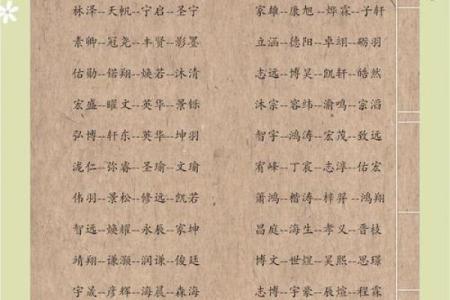 林泽--天帆--宁启--圣宁
素卿--冠尧--丰贤--影墨
佑勋--锘翔--焕若--沐清
宏盛--曜文--英华--景铄
弘博--轩东--英华--坤羽
泷仁--弥睿--圣瑜--文瑜
伟羽--景松--修远--凯若
智远--焕耀--永辰--家坤
靖翔--谦灏--润谦--俊廷
宇晟--彦辉--海晨--森海
家雄--康旭--烨霖--子轩
立涵--德阳--卓翊--砺羽
志远--博昊--凯轩--皓然
沐宗--容纬--渝鸣--宗滔
智宇--鸿涛--宏茂--致远
宥峰--丁宸--志淳--佑宏
萧鸿--楷涛--梓羿--鸿翔
昌庭--海生--孝义--晋枝
博文--世煜--昊熙--思璟
志博--宇豪--辰煊--程霖